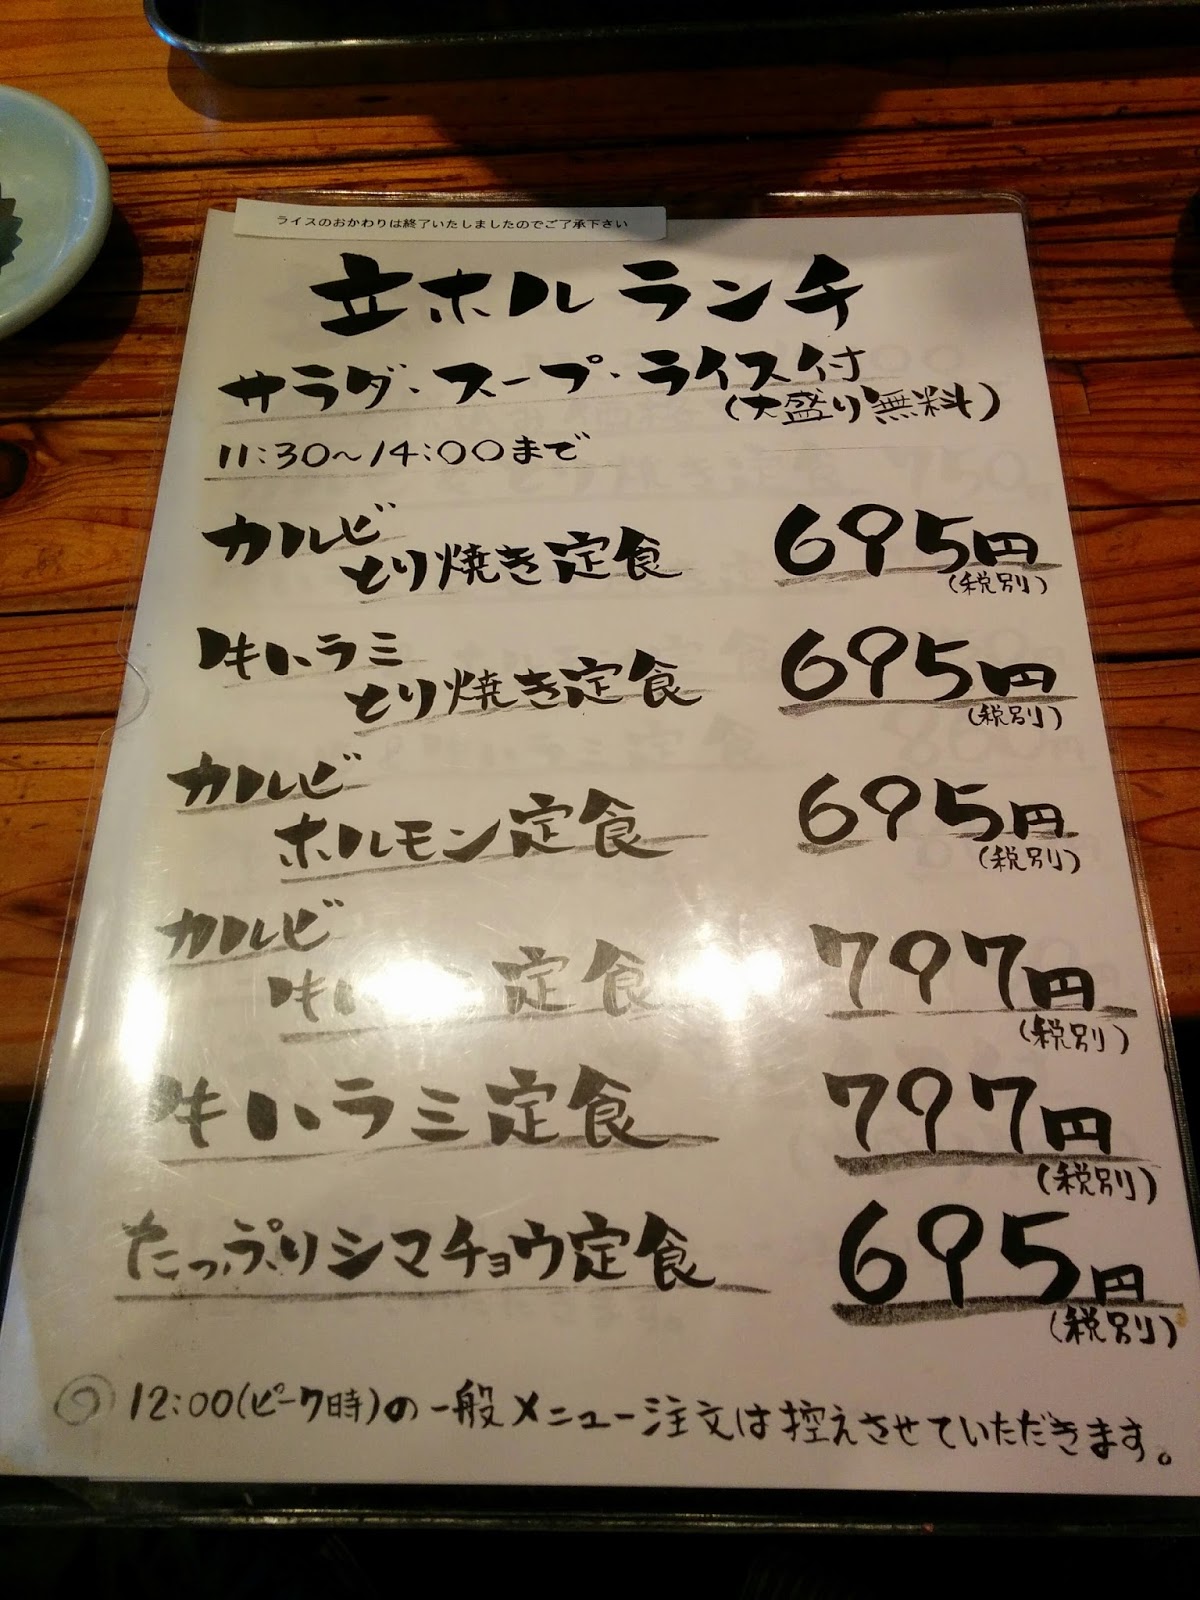 ライスのおかわりは終了いたしましたのでご了承下さい
立ホルランチ
サラダ・スープ・ライス付
(大盛り無料)
11:30~14:00まで
カルビ
とり焼き定食 695円
(税別)
牛ハラミ
とり焼き定食 695円
(税別)
カルビ
ホルモン定食 695円
(税別)
カルビ
牛ハ 定食 797円
(税別)
牛ハラミ定食 797円
(税別)
たっぷりシマチョウ定食 695円
(税別)
◎12:00(ピーク時)の一般メニュー注文は控えさせていただきます。